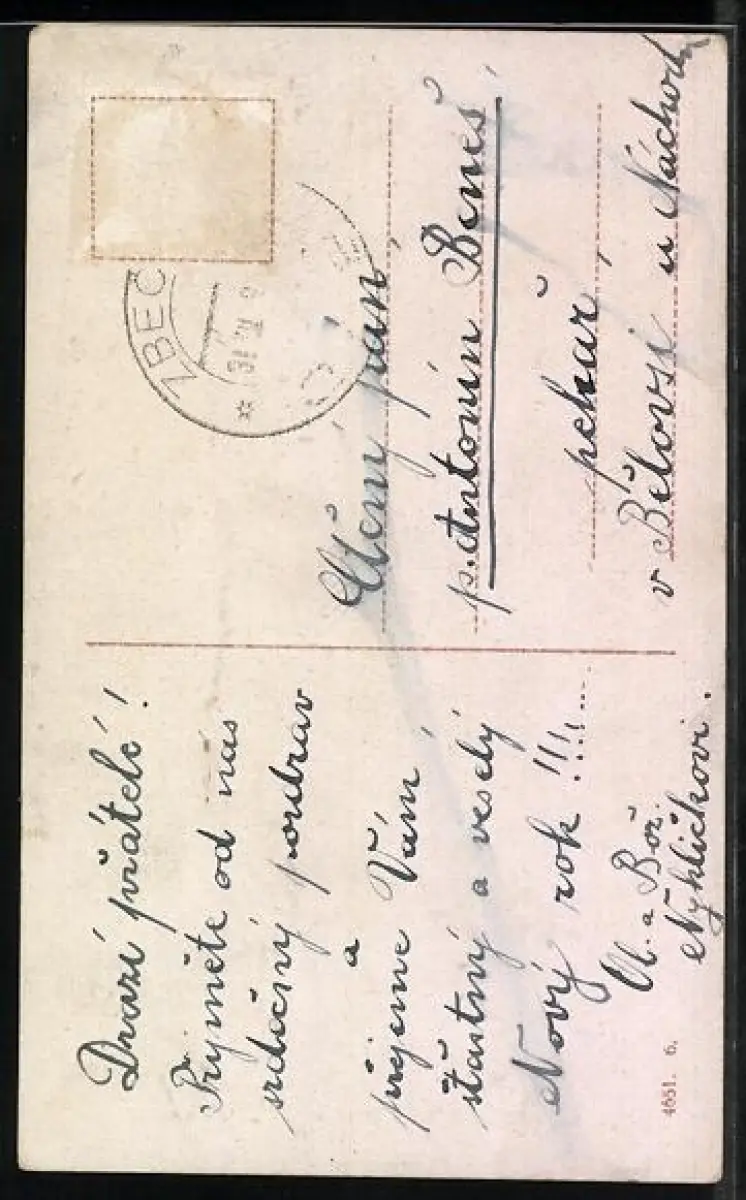 Drazí přátelé!
Přijměte od nás
srdečný pozdrav
a
přejeme Vám
šťastný a veselý
Nový rok!!!
a Bož.
Nyklíčkovi.
4651. 6.
ZBEČ
Ctěný pán,
p. Antonín Beneš,
pekař,
v Bělovsi u Náchoda